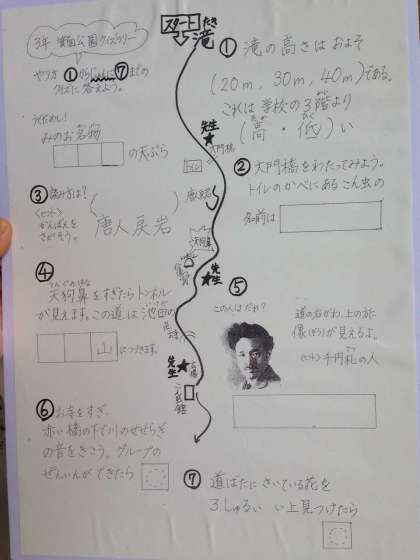 3年 箕面公園クイズラリー
やり方 ①からじゅんに⑦までの
クイズに答えよう。
うでだめし!
みのお名物
の天ぷら
スタート
たき
滝
① 滝の高さは およそ
(20m, 30m, 40m)である。
これは 学校の3階より
(高・低)い
先生
★
大門橋
トイレ
唐人岩
天狗鼻
② 大門橋をわたってみよう。
トイレのかべにある こん虫の
名前は
③ 読み方は?
<ヒント>
かんばんを
さがそう。
唐人戻岩
④
てんぐのはな
天狗鼻をすぎたらトンネル
が見えます。この道は池田の
山につづきます。
先生
★
⑤
この人はだれ?
道の右がわ、上の方に
像(ぞう)が見えるよ。
<ヒント> 千円札の人
先生
★
こん虫館
⑥ お寺をすぎ、
赤い橋の下で川のせせらぎ
の音をきこう。グループの
ぜんいんができたら
⑦ 道ばたに さいている花を
3しゅるい い上見つけたら